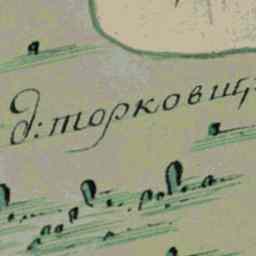 д: торковищ